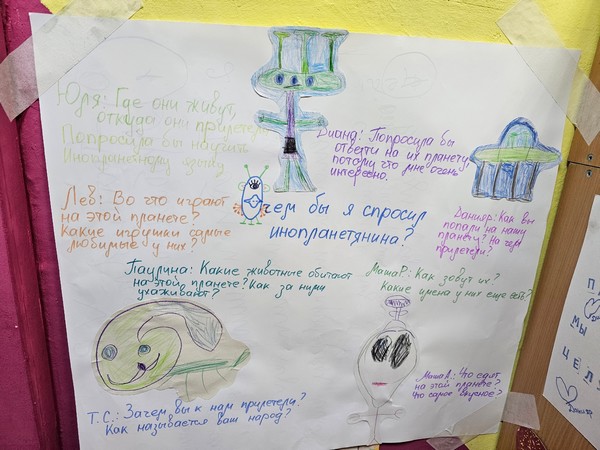 Юля: Где они живут,
откуда они прилетели
Попросила бы научить
Инопланетному языку
Диана: Попросила бы
отвезти на их планету
потому что мне очень
интересно.
Лев: Во что играют
на этой планете?
Какие игрушки самые
любимые у них?
чем бы я спросил
инопланетянина?
Данияр: Как вы
попали на нашу
планету? На чем
прилетели?
Паулина: Какие животные обитают
на этой планете? Как за ними
ухаживают?
Маша Р: Как зовут их?
Какие имена у них еще есть?
Маша А: Что едят
на этой планете?
Что самое вкусное?
Т.С.: Зачем вы к нам прилетели?
Как называется ваш народ?
П
МЫ
ЧЕЛ